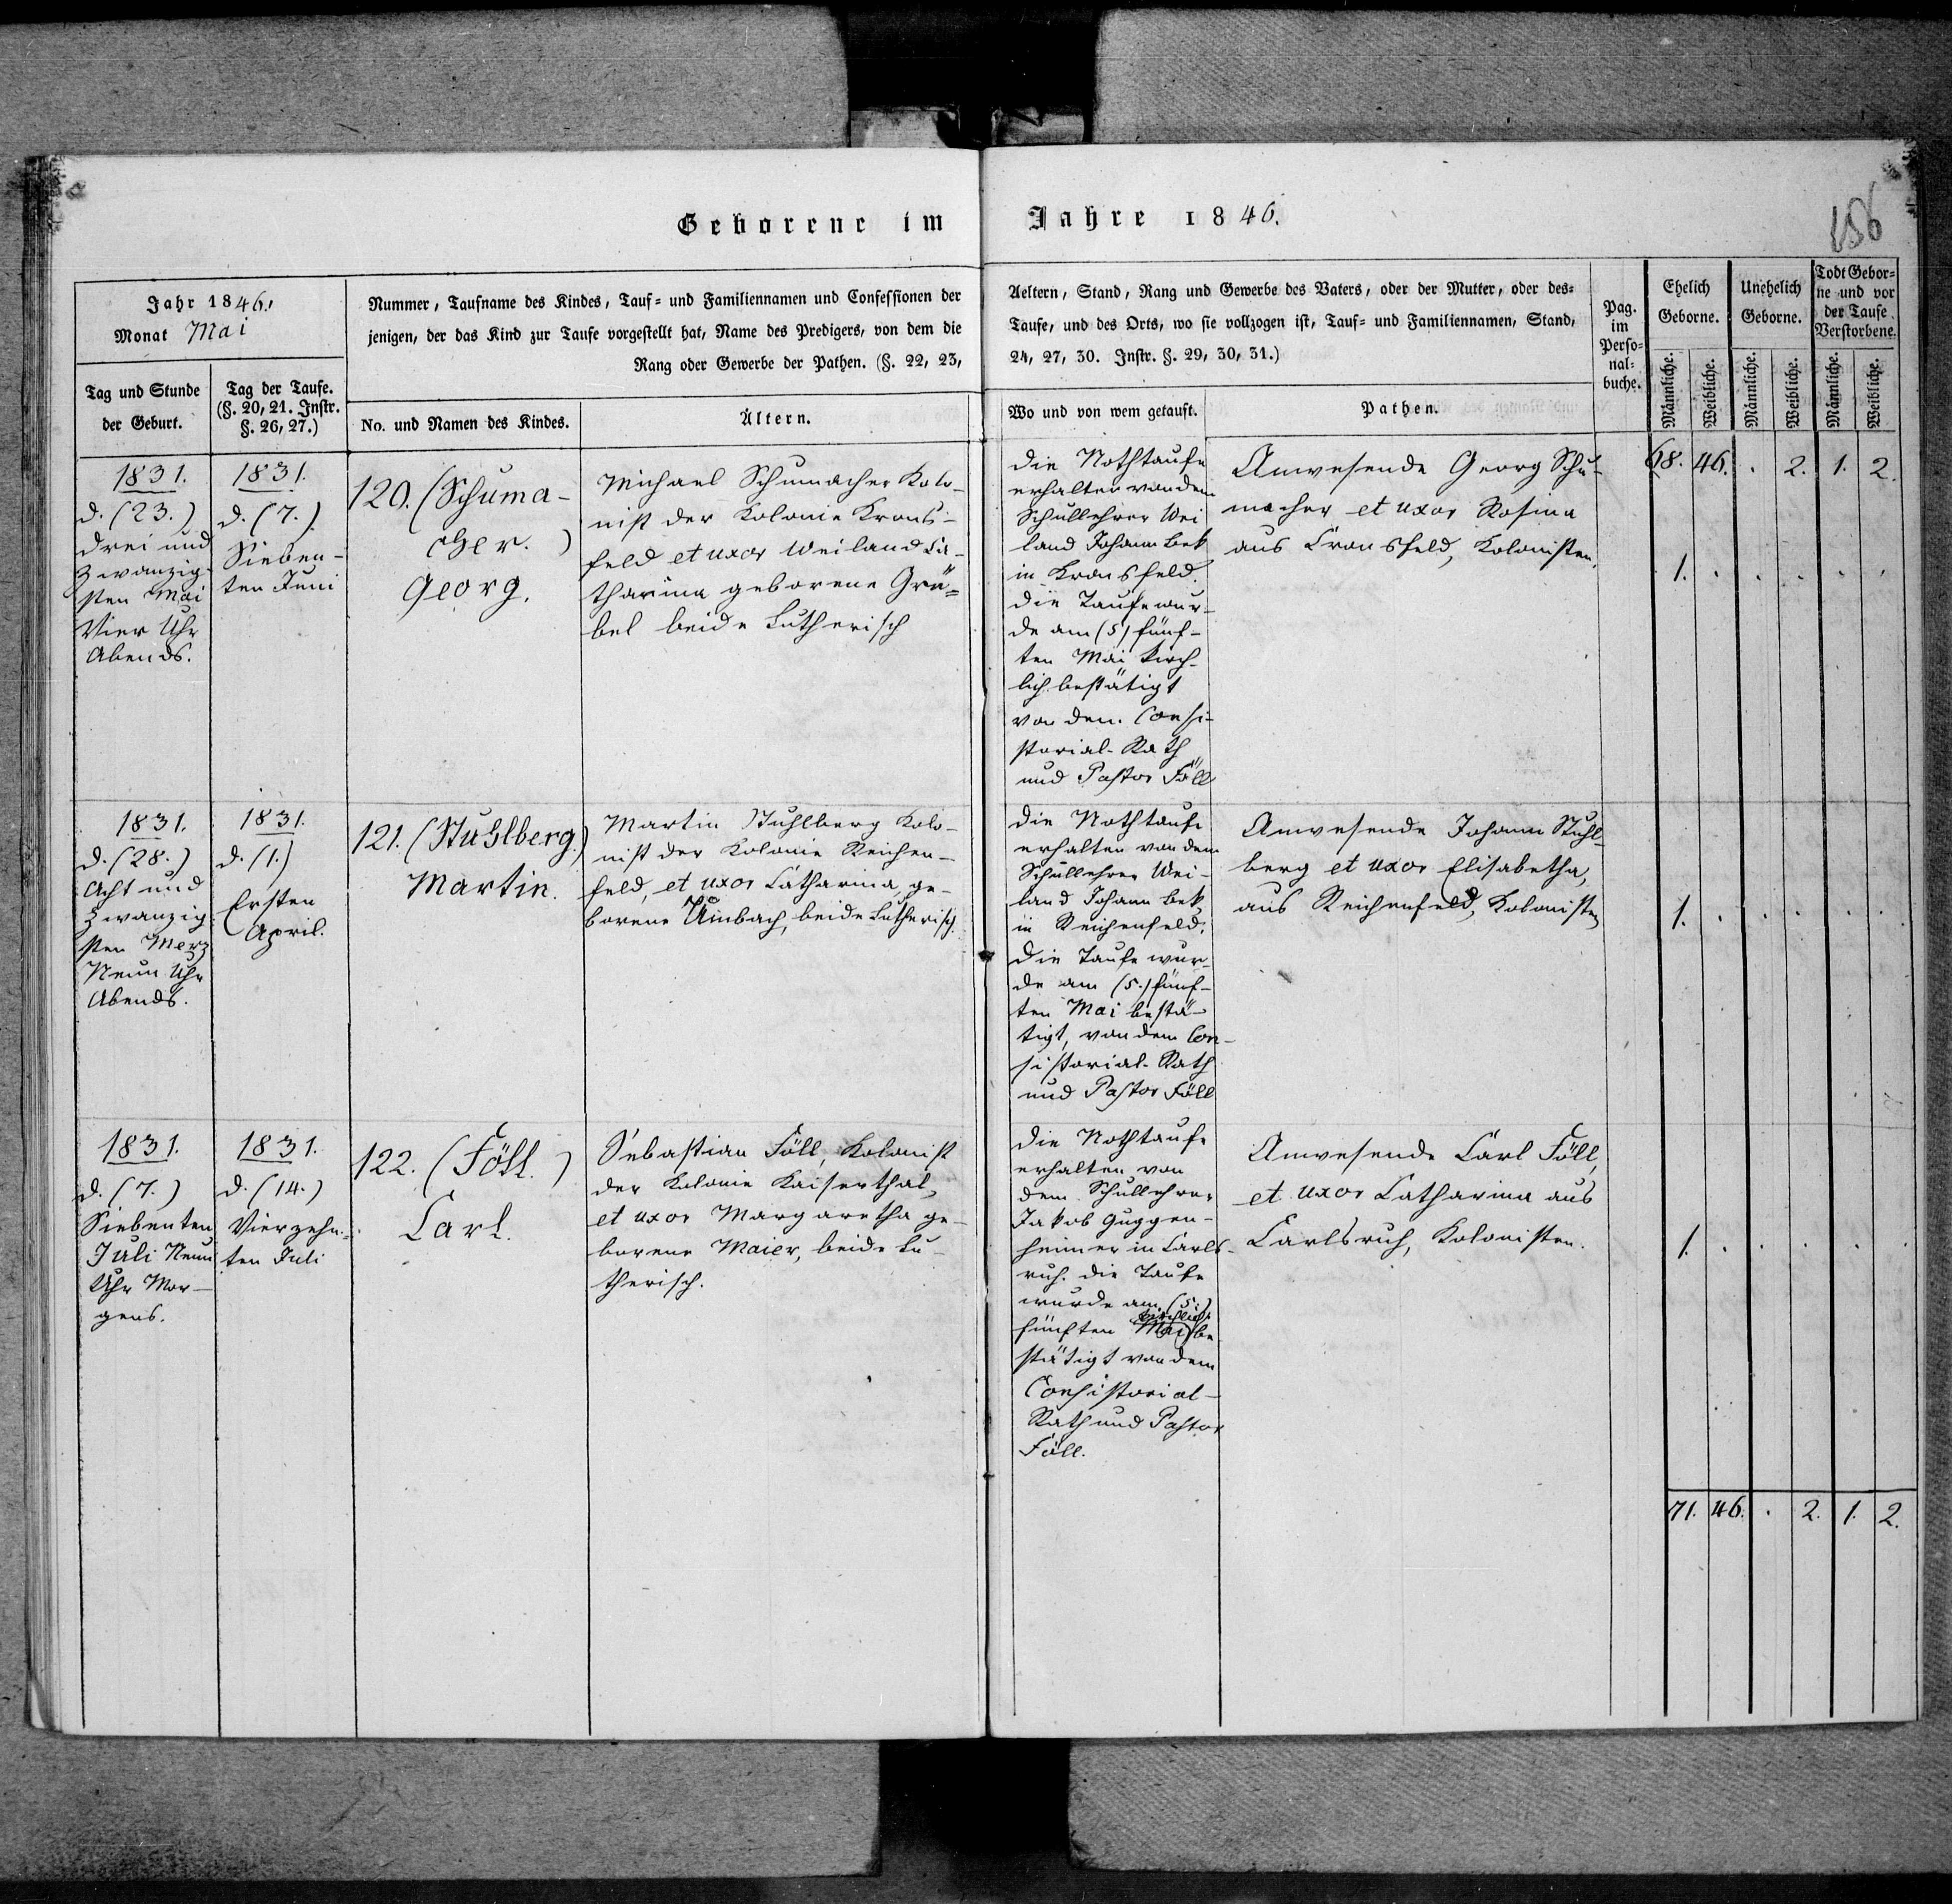 Geborene im Jahre 1846.
156
Jahr 1846.
Monat Mai
Nummer, Taufname des Kindes, Tauf- und Familiennamen und Confessionen der
jenigen, der das Kind zur Taufe vorgestellt hat, Name des Predigers, von dem die
Rang oder Gewerbe der Pathen. (§. 22, 23,
Aeltern, Stand, Rang und Gewerbe des Vaters, oder der Mutter, oder des-
Taufe, und des Orts, wo sie vollzogen ist, Tauf- und Familiennamen, Stand,
24, 27, 30. Instr. §. 29, 30, 31.)
Pag.
im
Perso-
nal-
buche.
Ehelich
Geborne.
Unehelich
Geborne.
Todt Gebor-
ne und vor
der Taufe
Verstorbene.
Tag und Stunde
der Geburt.
Tag der Taufe.
(§. 20, 21. Instr.
§. 26, 27.)
No. und Namen des Kindes.
Ältern.
Wo und von wem getauft.
Pathen.
Männliche.
Weibliche.
Männliche.
Weibliche.
Männliche.
Weibliche.
1831.
d. (23.)
drei und
zwanzig-
sten Mai
Vier Uhr
Abends.
1831.
d. (7.)
Sieben-
ten Juni
120. (Schuma-
cher.)
Georg.
Michael Schumacher Kolo-
nist der Kolonie Krons-
feld et uxor Weiland Ca-
tharina geborene Grä-
bel beide Lutherisch
die Nothtaufe
erhalten von dem
Schullehrer Wei
land Johann Bek
in Kronsfeld.
die Taufe wur-
de am (5) fünf-
ten Mai kirch-
lich bestätigt
von dem Consi-
storial-Rath
und Pastor Föll
Anwesende Georg Schu-
macher et uxor Rosina
aus Cronsfeld, Kolonisten.
68. 46. . 2. 1. 2.
1. . . . . .
1831.
d. (28.)
Acht und
zwanzig-
sten Merz
Neun Uhr
Abends.
1831.
d. (1.)
Ersten
April.
121. (Stuhlberg.)
Martin.
Martin Stuhlberg Kolo-
nist der Kolonie Reichen-
feld, et uxor Catharina, ge-
borene Umbach, beide Lutherisch.
die Nothtaufe
erhalten von dem
Schullehrer Wei-
land Johann Bek
in Reichenfeld.
die Taufe wur-
de am (5.) fünf-
ten Mai bestä-
tigt, von dem Con-
sistorial-Rath
und Pastor Föll
Anwesende Johann Stuhl-
berg et uxor Elisabetha,
aus Reichenfeld, Kolonisten
1. . . . . .
1831.
d. (7.)
Siebenten
Juli Neun
Uhr Mor-
gens.
1831.
d. (14.)
Vierzehn-
ten Juli
122. (Föll.)
Carl.
Sebastian Föll, Kolonist
der Kolonie Kaiserthal,
et uxor Margaretha ge-
borene Maier, beide Lu-
therisch.
die Nothtaufe
erhalten von
dem Schullehrer
Jakob Guggen-
heimer in Carls-
ruh. die Taufe
wurde am (5.)
kirchlich
fünften Mai be
stätigt von dem
Consistorial-
Rath und Pastor
Föll.
Anwesende Carl Föll,
et uxor Catharina aus
Carlsruh, Kolonisten.
1. . . . . .
71. 46. . 2. 1. 2.